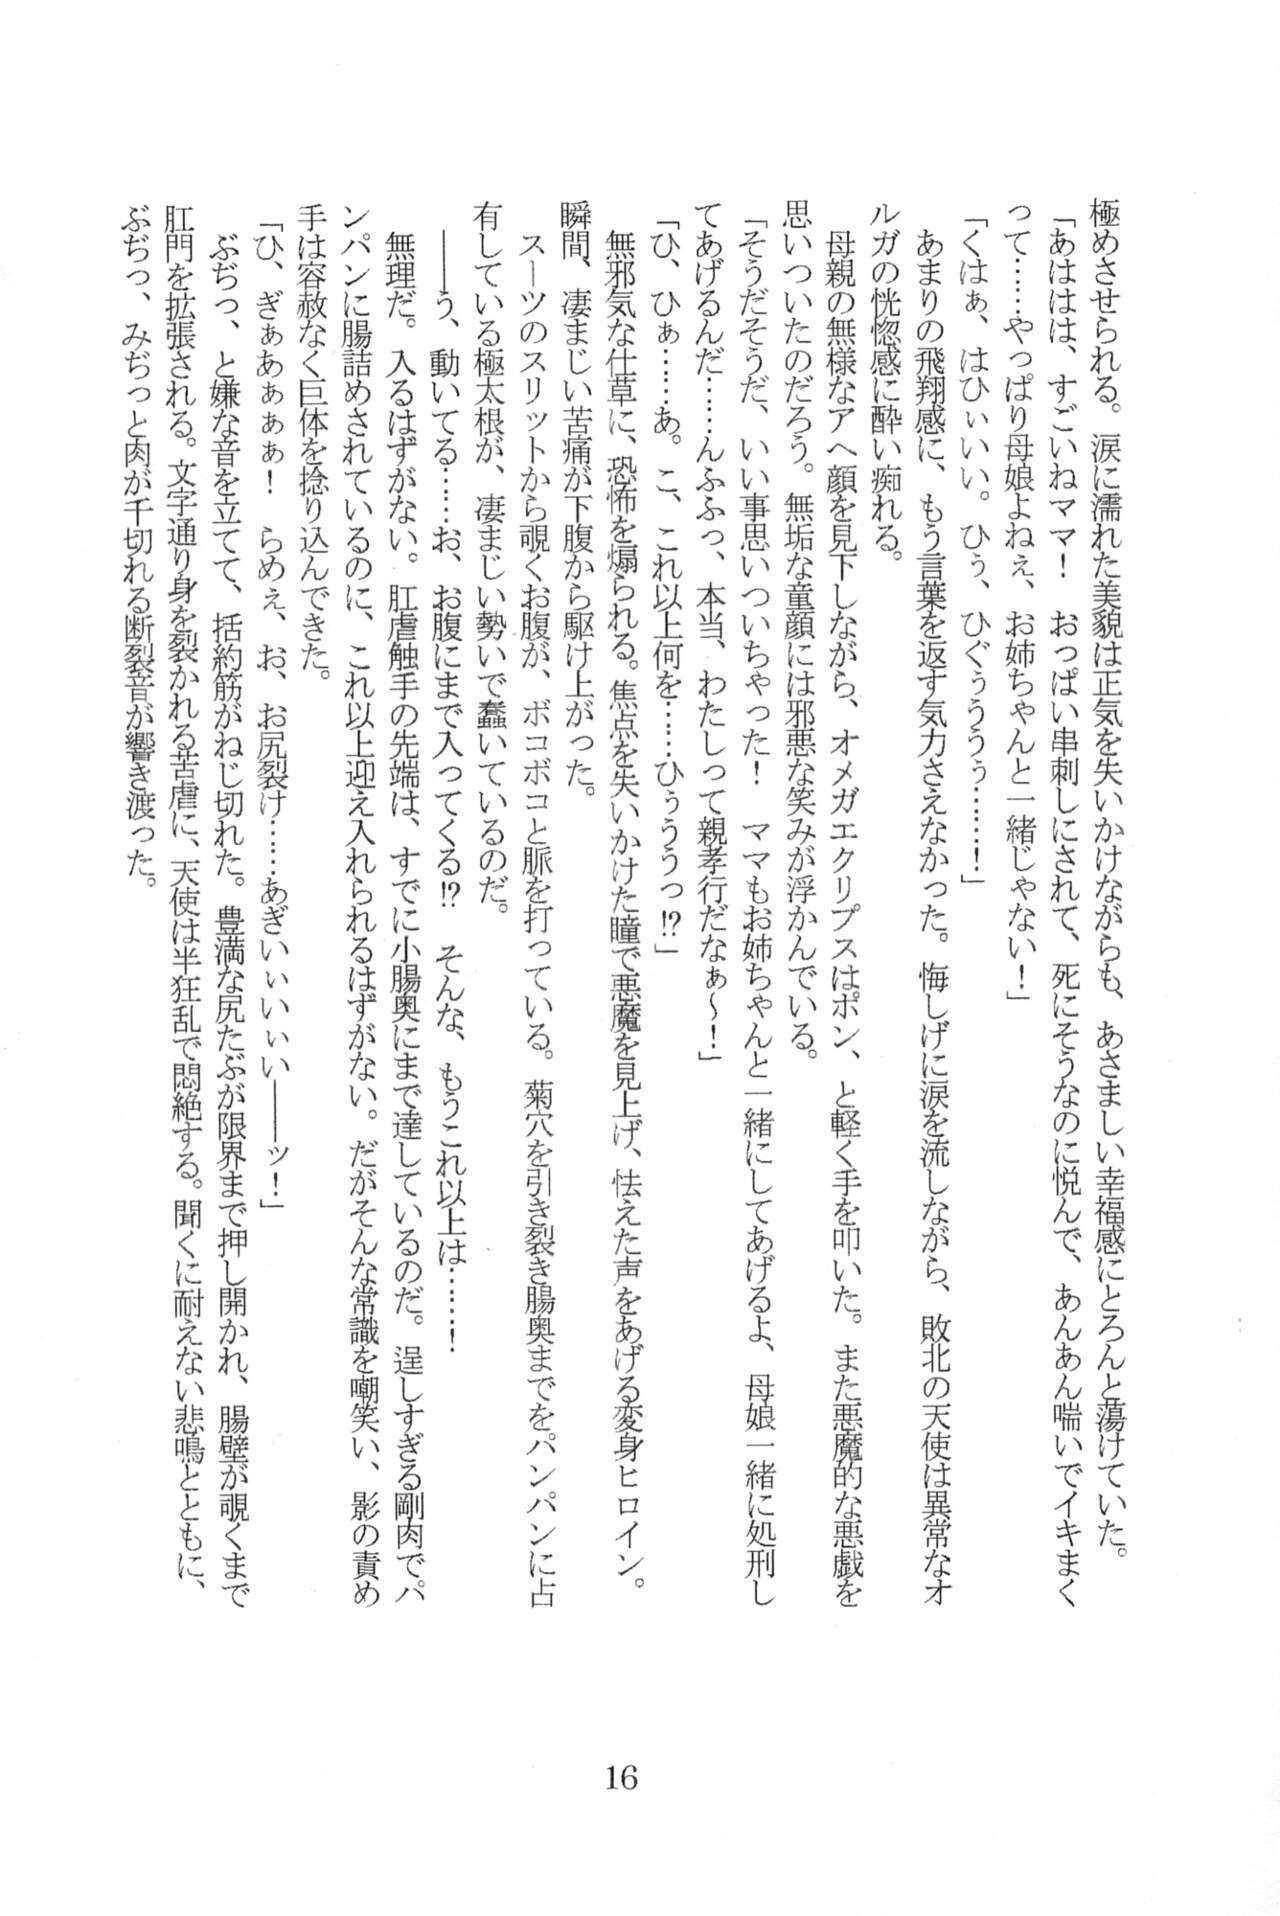 極めさせられる。涙に濡れた美貌は正気を失いかけながらも、あさましい幸福感にとろんと蕩けていた。
「あははは、すごいねママ！　おっぱい串刺しにされて、死にそうなのに悦んで、あんあん喘いでイキまく
って……やっぱり母娘よねぇ、お姉ちゃんと一緒じゃない！」
「くはぁ、はひぃいい。ひぅ、ひぐぅううぅ……！」
　あまりの飛翔感に、もう言葉を返す気力さえなかった。悔しげに涙を流しながら、敗北の天使は異常なオ
ルガの恍惚感に酔い痴れる。
　母親の無様なアヘ顔を見下しながら、オメガエクリプスはポン、と軽く手を叩いた。また悪魔的な悪戯を
思いついたのだろう。無垢な童顔には邪悪な笑みが浮かんでいる。
「そうだそうだ、いい事思いついちゃった！　ママもお姉ちゃんと一緒にしてあげるよ、母娘一緒に処刑し
てあげるんだ……んふふっ、本当、わたしって親孝行だなぁ～！」
「ひ、ひぁ……あ。こ、これ以上何を……ひぅううっ!?」
　無邪気な仕草に、恐怖を煽られる。焦点を失いかけた瞳で悪魔を見上げ、怯えた声をあげる変身ヒロイン。
瞬間、凄まじい苦痛が下腹から駆け上がった。
　スーツのスリットから覗くお腹が、ボコボコと脈を打っている。菊穴を引き裂き腸奥までをパンパンに占
有している極太根が、凄まじい勢いで蠢いているのだ。
　――う、動いてる……お、お腹にまで入ってくる!?　そんな、もうこれ以上は……！
　無理だ。入るはずがない。肛虐触手の先端は、すでに小腸奥にまで達しているのだ。逞しすぎる剛肉でパ
ンパンに腸詰めされているのに、これ以上迎え入れられるはずがない。だがそんな常識を嘲笑い、影の責め
手は容赦なく巨体を捻り込んできた。
「ひ、ぎぁあぁぁぁ！　らめぇ、お、お尻裂け……あぎいぃいぃい――ッ！」
　ぶぢっ、と嫌な音を立てて、括約筋がねじ切れた。豊満な尻たぶが限界まで押し開かれ、腸壁が覗くまで
肛門を拡張される。文字通り身を裂かれる苦虐に、天使は半狂乱で悶絶する。聞くに耐えない悲鳴とともに、
ぶぢっ、みぢっと肉が千切れる断裂音が響き渡った。
16